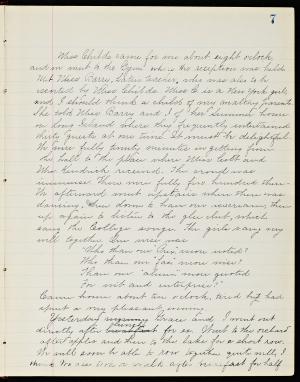 7
Miss Childs came for me about eight o'clock
and we went to the Gym where the reception was held.
Met Miss Barry, Latin teacher, who was also to be
escorted by Miss Childs. Miss C is a New York girl
and, I should think a child of very wealthy parents.
She told Miss Barry and I of her summer home
on Long Island where they frequently entertained
thirty guests at one time. It must be delightful.
We were fully twenty minutes in getting from
the hall to the place where Miss Cobb and
Miss Kendrick received. The crowd was
immense. There were fully five hundred there.
We afterward went upstairs where there was
dancing, then down to have our ice cream, then
up again to listen to the glee club, which
sang the College songs. The girls sang very
well together. One verse was
"Who than our more noted?
Who than our more wise?
Than our more quoted
For wit and enterprise?"
Came home about ten o'clock, tired but had
spent a very pleasant evening.
Yesterday Grace and I went out
directly after for ex. Went to the orchard
after apples and then to the lake for a short row.
We will soon be able to row together quite well, I
think. for half